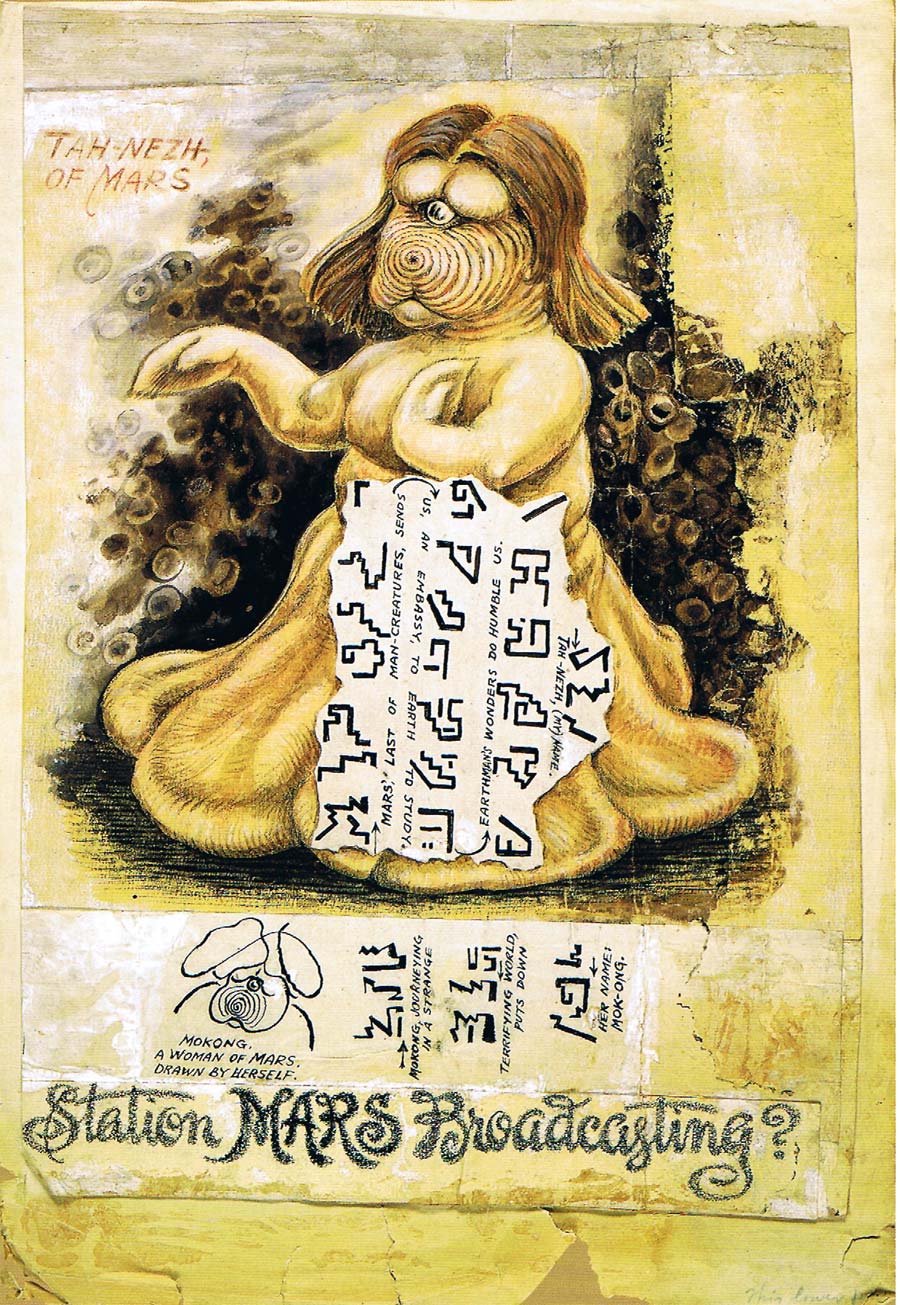 TAH-NEZH,
OF MARS
MARS', LAST OF MAN-CREATURES, SENDS
US, AN EMBASSY, TO EARTH TO STUDY.
EARTHMAN'S WONDERS DO HUMBLE US.
TAH-NEZH, (MY) NAME.
MOKONG,
A WOMAN OF MARS.
DRAWN BY HERSELF.
MOKONG, JOURNEYING
IN A STRANGE
TERRIFYING WORLD,
PUTS DOWN
HER NAME:
MOK-ONG.
Station MARS Broadcasting?
This lower